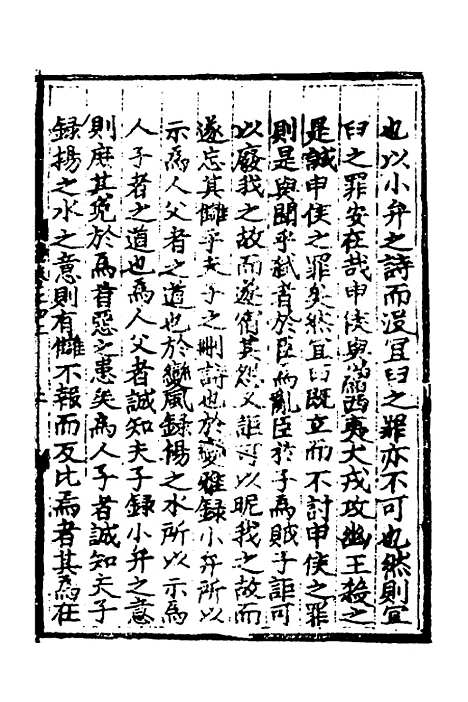 也以小弁之詩而没宜臼之罪亦不可也然則宜
臼之罪安在哉申侯與繒西夷犬戎攻幽王殺之
是誠申侯之罪矣然宜臼既立而不討申侯之罪
則是與聞乎弑者於臣為亂臣於子為賊子詎可
以廢我之故而遂銜其怨又詎可以昵我之故而
遂忘其讎乎夫子之刪詩也於變雅録小弁所以
示為人父者之道也於變風録揚之水所以示為
人子者之道也為人父者誠知夫子録小弁之意
則庶其免於為首惡之患矣為人子者誠知夫子
録揚之水之意則有讎不報而反比焉者其為在